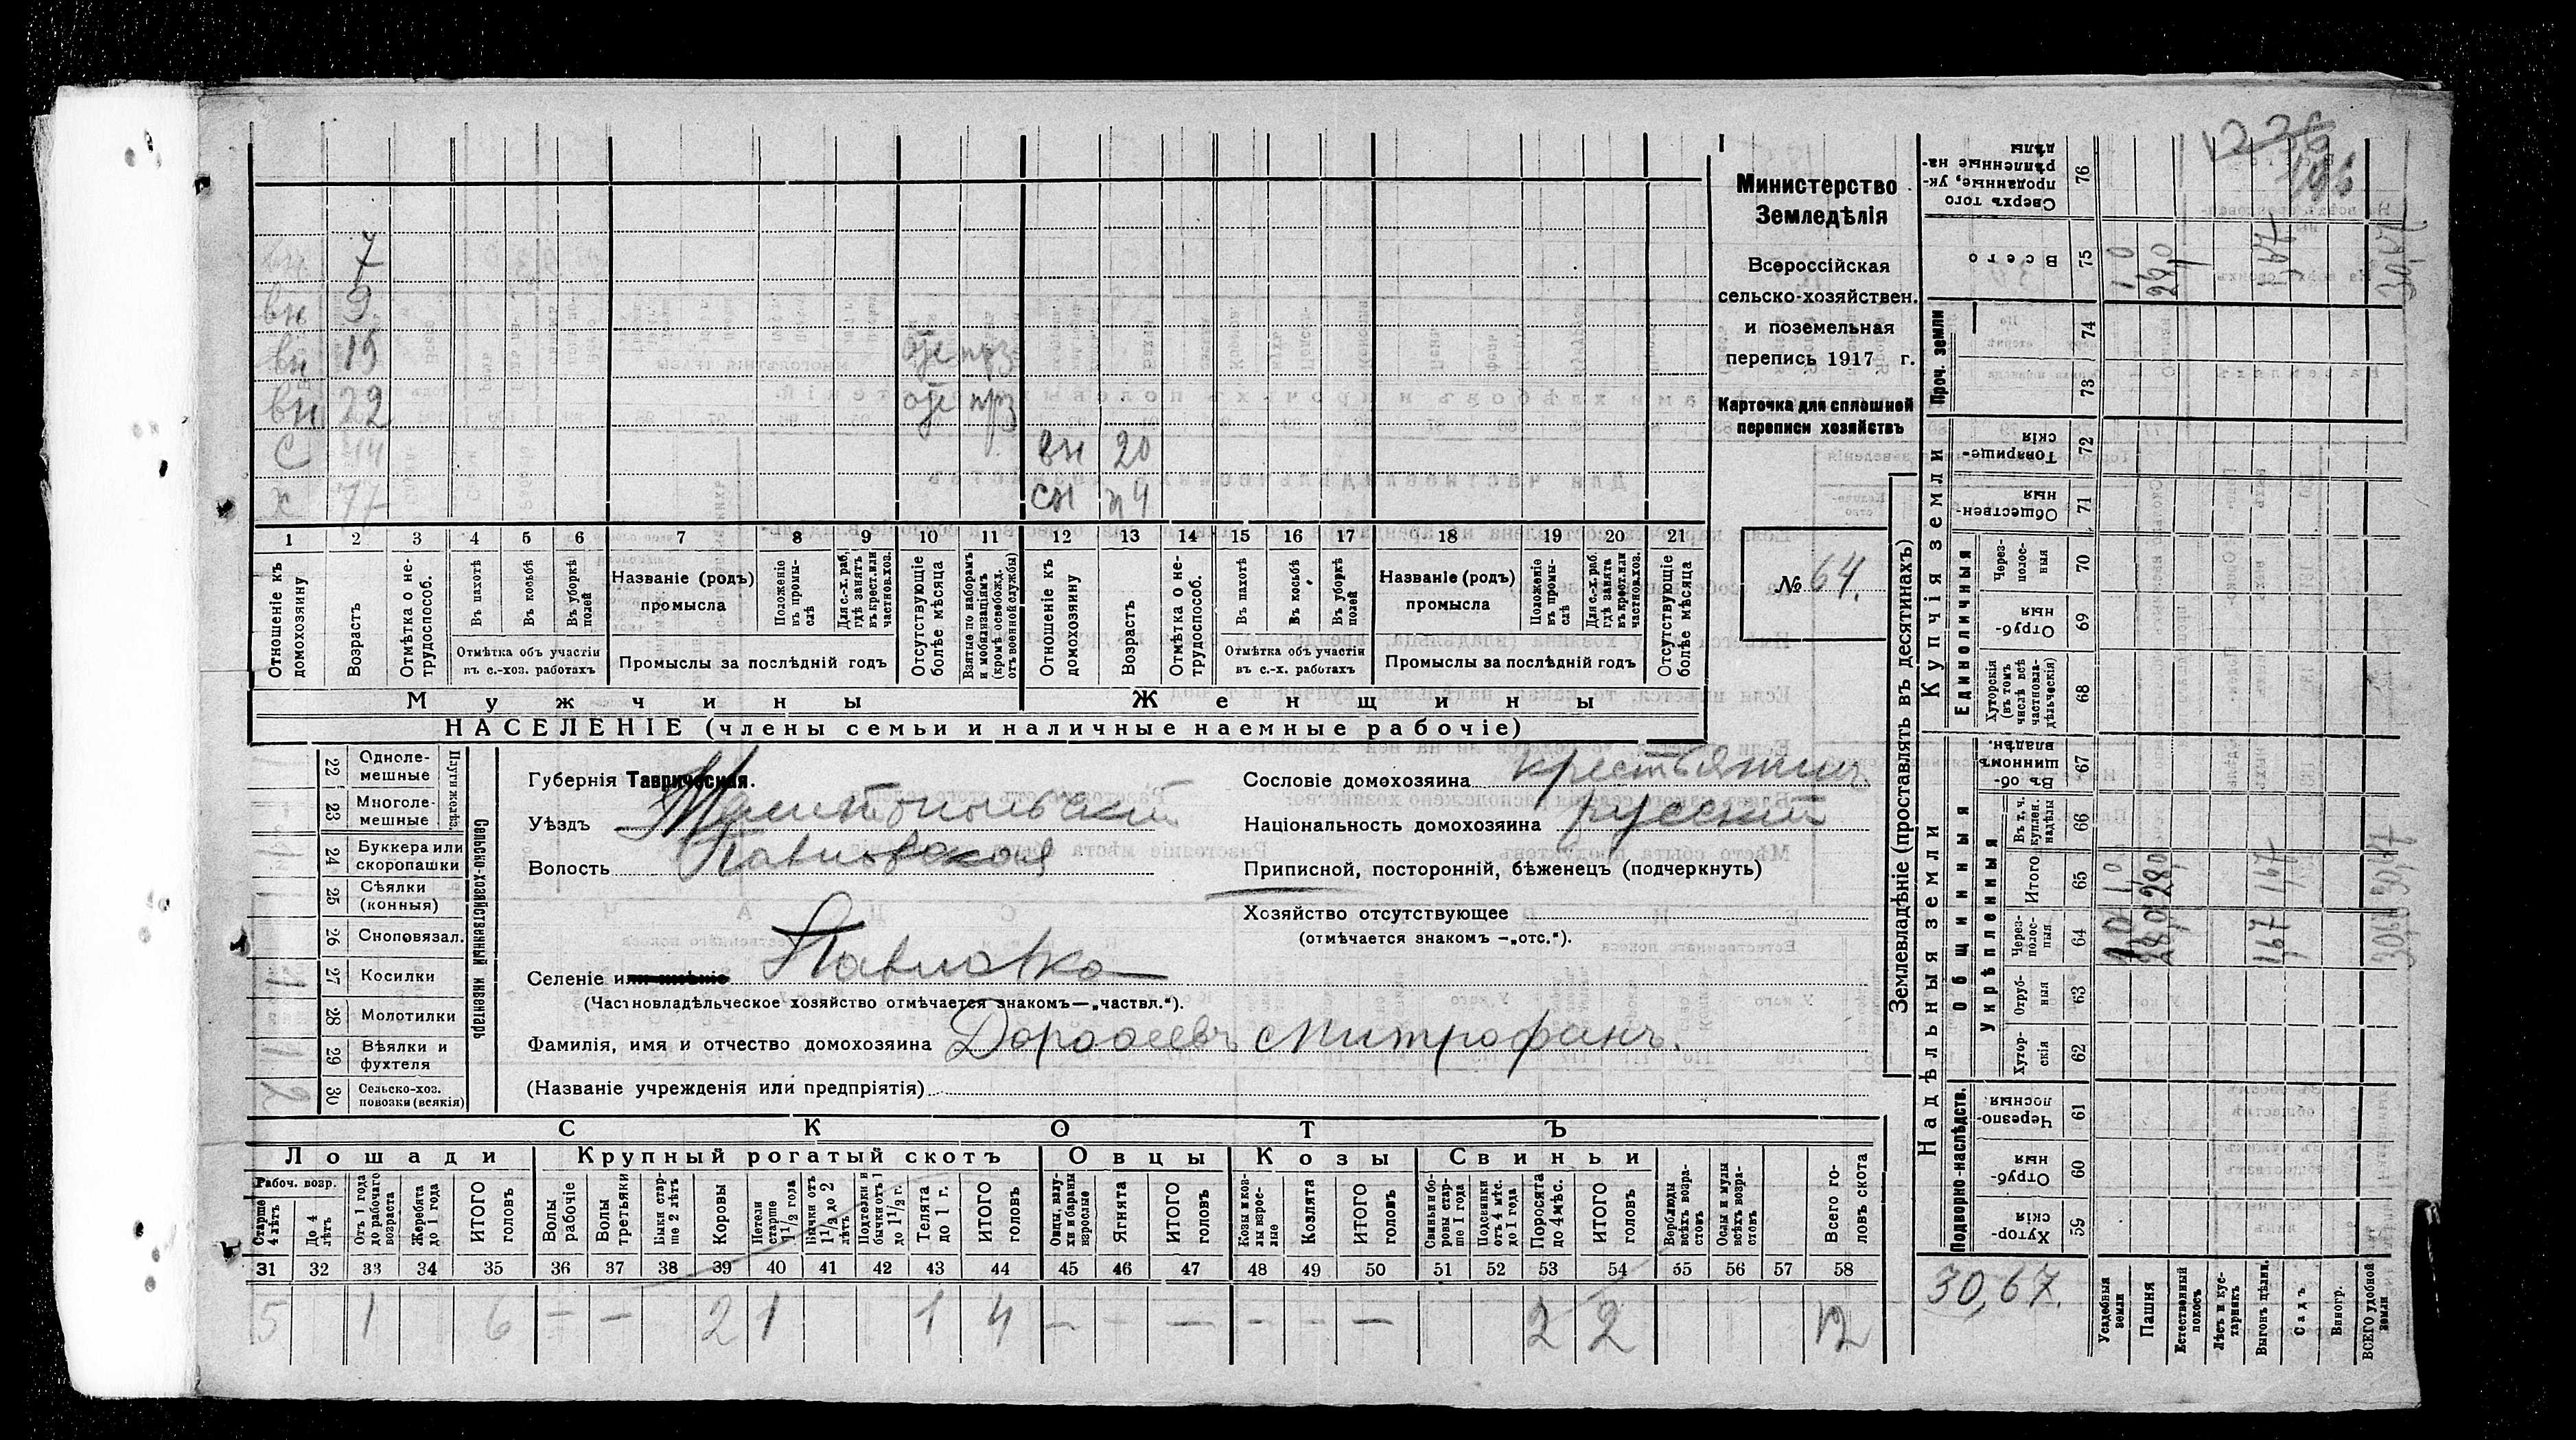 вн 7
вн 9
вн 15 отс прз
вн 22 отс прз
С 44 вн 20
х 77 сн 24
1 2 3 4 5 6 7 8 9 10 11 12 13 14 15 16 17 18 19 20 21
Отношеніе къ домохозяину
Возрастъ
Отмѣтка о нетрудоспособ.
Въ пахотѣ
Въ косьбѣ
Въ уборкѣ полей
Отмѣтка объ участіи въ с.-хоз. работахъ
Названіе (родъ) промысла
Положеніе въ промыслѣ
Для с.-х. раб. гдѣ занятъ въ крест. или частновл. хоз.
Промыслы за послѣдній годъ
Отсутствующіе болѣе мѣсяца
Взятые по наборамъ и мобилизаціямъ (кромѣ освобожд. отъ военной службы)
Отношеніе къ домохозяину
Возрастъ
Отмѣтка о нетрудоспособ.
Въ пахотѣ
Въ косьбѣ
Въ уборкѣ полей
Отмѣтка объ участіи въ с.-х. работахъ
Названіе (родъ) промысла
Положеніе въ промыслѣ
Для с.-х. раб. гдѣ занята въ крест. или частновл. хоз.
Промыслы за послѣдній годъ
Отсутствующіе болѣе мѣсяца
Мужчины Женщины
НАСЕЛЕНІЕ (члены семьи и наличные наемные рабочіе)
Министерство
Земледѣлія
Всероссійская
сельско-хозяйствен.
и поземельная
перепись 1917 г.
Карточка для сплошной
переписи хозяйствъ
№ 64.
22 Однолемешные
23 Многолемешные
Плуги желѣз.
24 Буккера или скоропашки
25 Сѣялки (конныя)
26 Сноповязал.
27 Косилки
28 Молотилки
29 Вѣялки и фухтеля
30 Сельско-хоз. повозки (всякія)
Сельско-хозяйственный инвентарь
1
1
2
Губернія Таврическая.
Уѣздъ Мелитопольскій
Волость Павловская
Селеніе или имѣніе Павловка
(Частновладѣльческое хозяйство отмѣчается знакомъ—„частвл.“).
Фамилія, имя и отчество домохозяина Дорофеевъ Митрофанъ.
(Названіе учрежденія или предпріятія)
Сословіе домохозяина крестьянин
Національность домохозяина русскій
Приписной, посторонній, бѣженецъ (подчеркнуть)
Хозяйство отсутствующее
(отмѣчается знакомъ —„отс.“).
СКОТЪ
Лошади Крупный рогатый скотъ Овцы Козы Свиньи
Рабоч. возр.
Старше 4 лѣтъ
До 4 лѣтъ
Отъ 1 года до рабочаго возраста
Жеребята до 1 года
ИТОГО головъ
Волы рабочіе
Волы третьяки
Быки старше 2 лѣтъ
Коровы
Нетели старше 1 1/2 года
Бычки отъ 1 1/2 до 2 лѣтъ
Подтелки и бычки отъ 1 до 1 1/2 г.
Телята до 1 г.
ИТОГО головъ
Овцы, валухи и бараны взрослые
Ягнята
ИТОГО головъ
Козы и козлы взрослые
Козлята
ИТОГО головъ
Свиньи и боровы старше 1 года
Подсвинки отъ 4 мѣс. до 1 года
Поросята до 4 мѣс.
ИТОГО головъ
Верблюды всѣхъ возрастовъ
Ослы и мулы всѣхъ возрастовъ
Всего головъ скота
31 32 33 34 35 36 37 38 39 40 41 42 43 44 45 46 47 48 49 50 51 52 53 54 55 56 57 58
5 1 6 — — 2 1 1 4 — - — - - — 2 2 12
Землевладѣніе (проставлять въ десятинахъ)
Купчія земли
Надѣльныя земли
Проч. земли
Единоличныя
Общинныя
Укрѣпленныя
Подворно-наслѣдств.
Сверхъ того проданные, укрѣпленные надѣлы 76
Всего 75
74
73
Товарищескія 72
Общественныя 71
Черезполосныя 70
Отрубныя 69
Хуторскія (въ томъ числѣ всѣ частновладѣльческія) 68
Въ общинномъ владѣн. 67
Въ т. ч. куплен. надѣлы 66
Итого 65
Черезполосныя 64
Отрубныя 63
Хуторскія 62
Черезполосныя 61
Отрубныя 60
Хуторскія 59
30,67.
Усадебныя земли
Пашня
Естественный покосъ
Лѣсъ и кустарникъ
Выгонъ цѣлин.
Садъ
Виногр.
ВСЕГО удобной земли
1,0
28,0
1,67
30,67